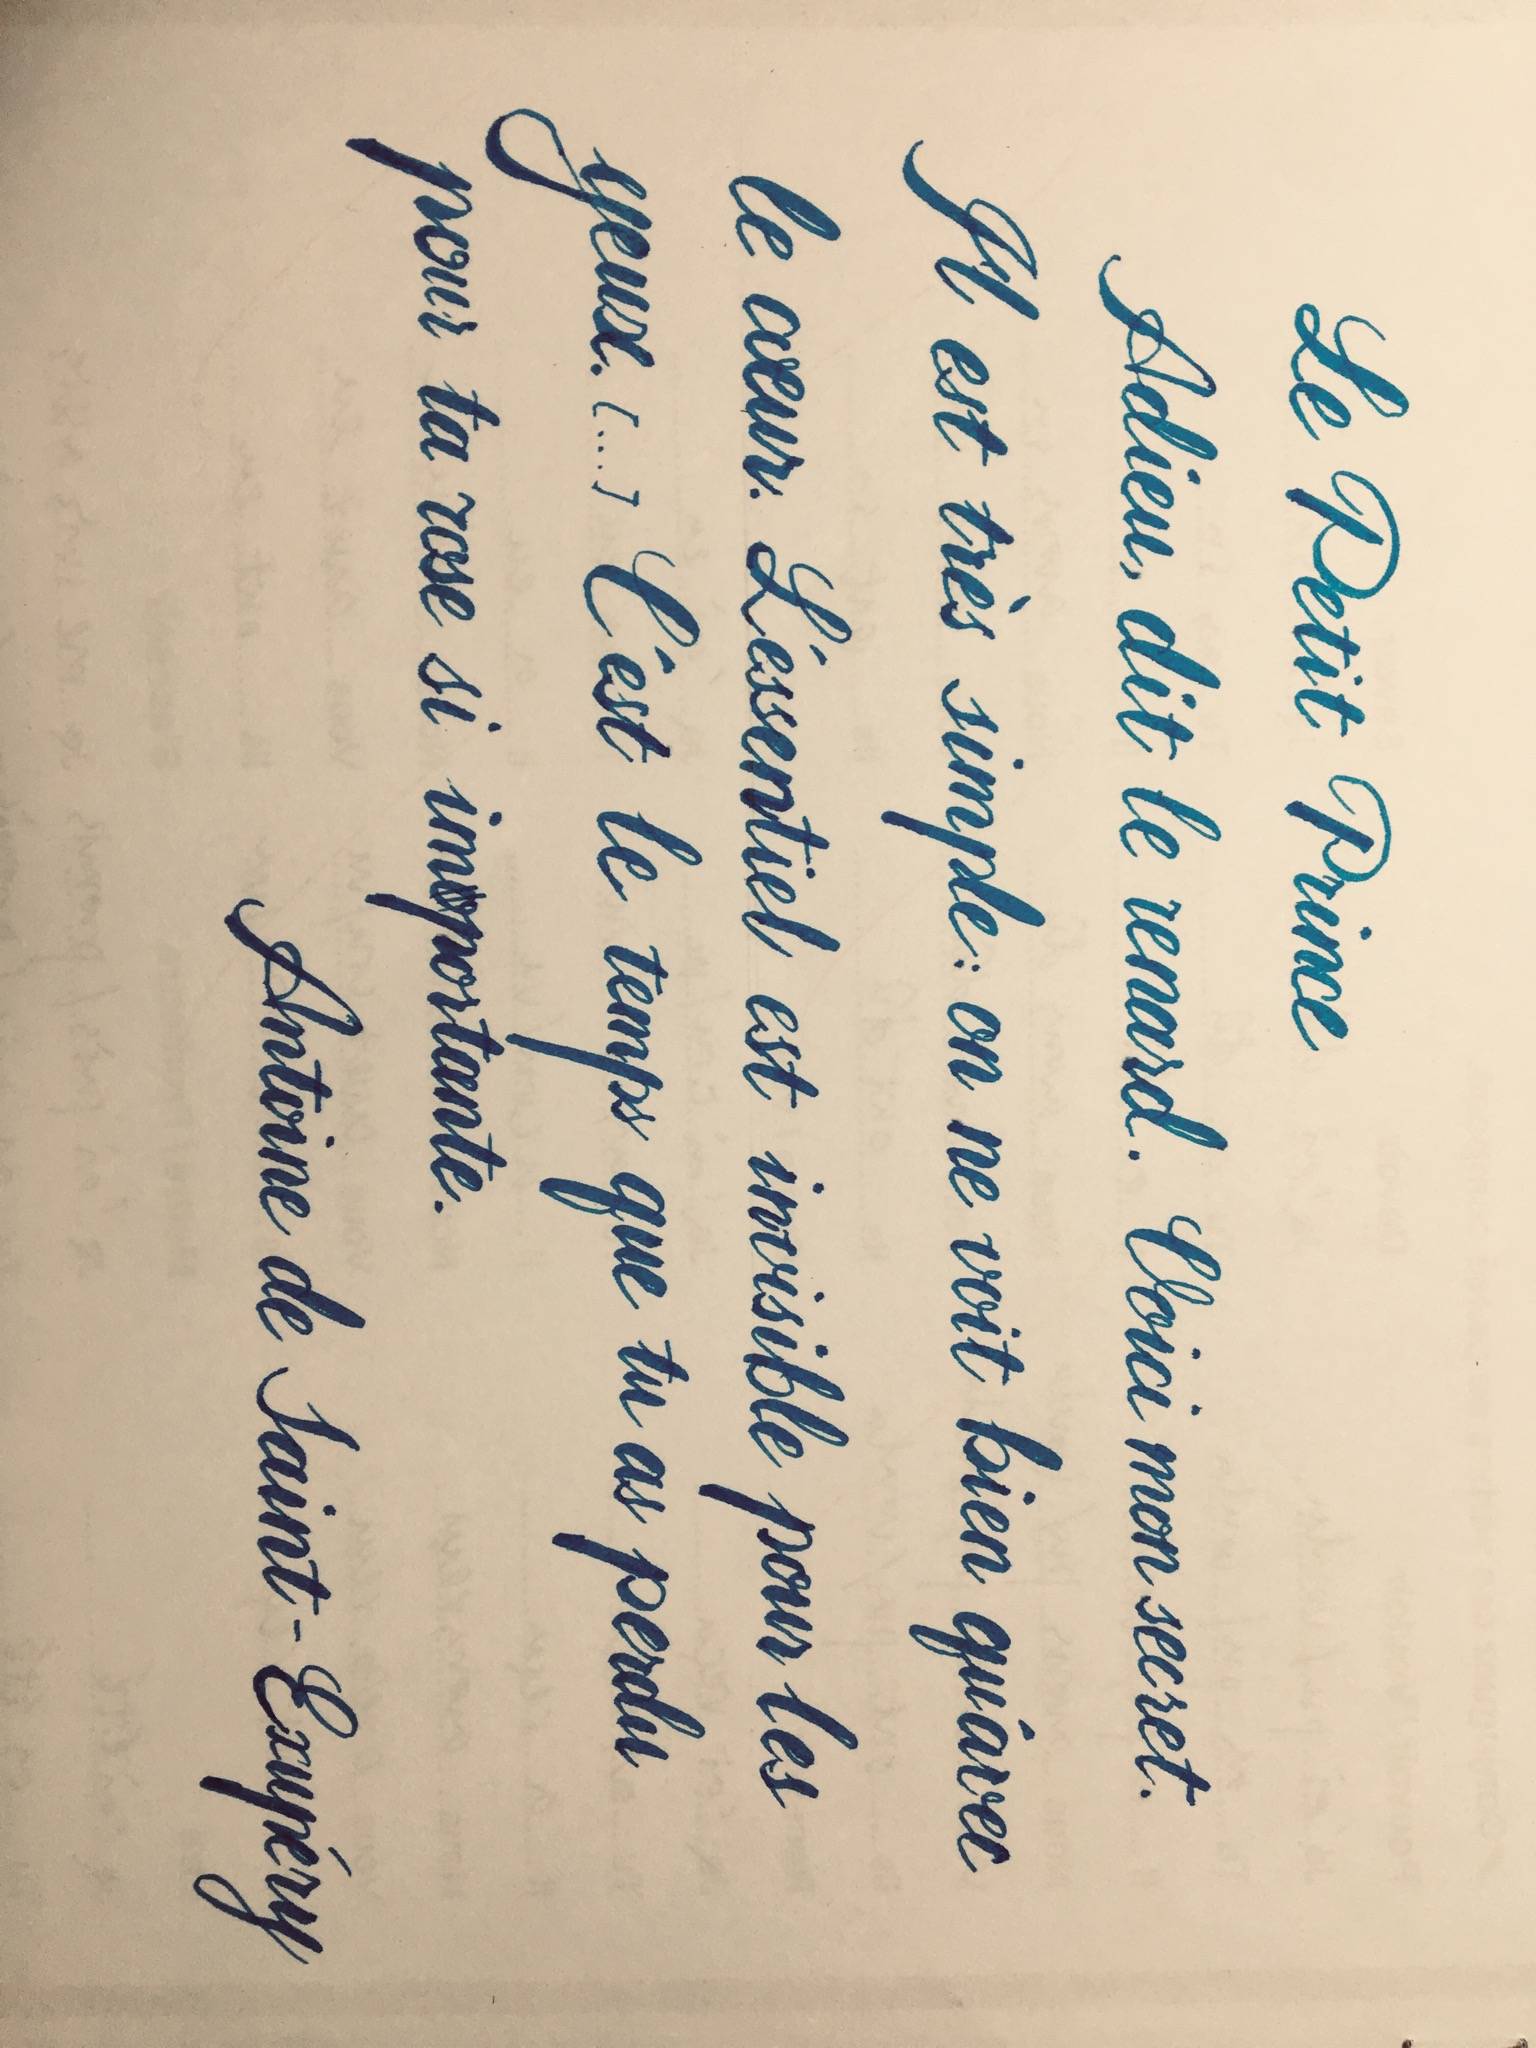 Le Petit Prince
Adieu, dit le renard. Voici mon secret.
Il est très simple: on ne voit bien qu'avec
le cœur. L'essentiel est invisible pour les
yeux. [...] C'est le temps que tu as perdu
pour ta rose si importante.
Antoine de Saint-Exupéry